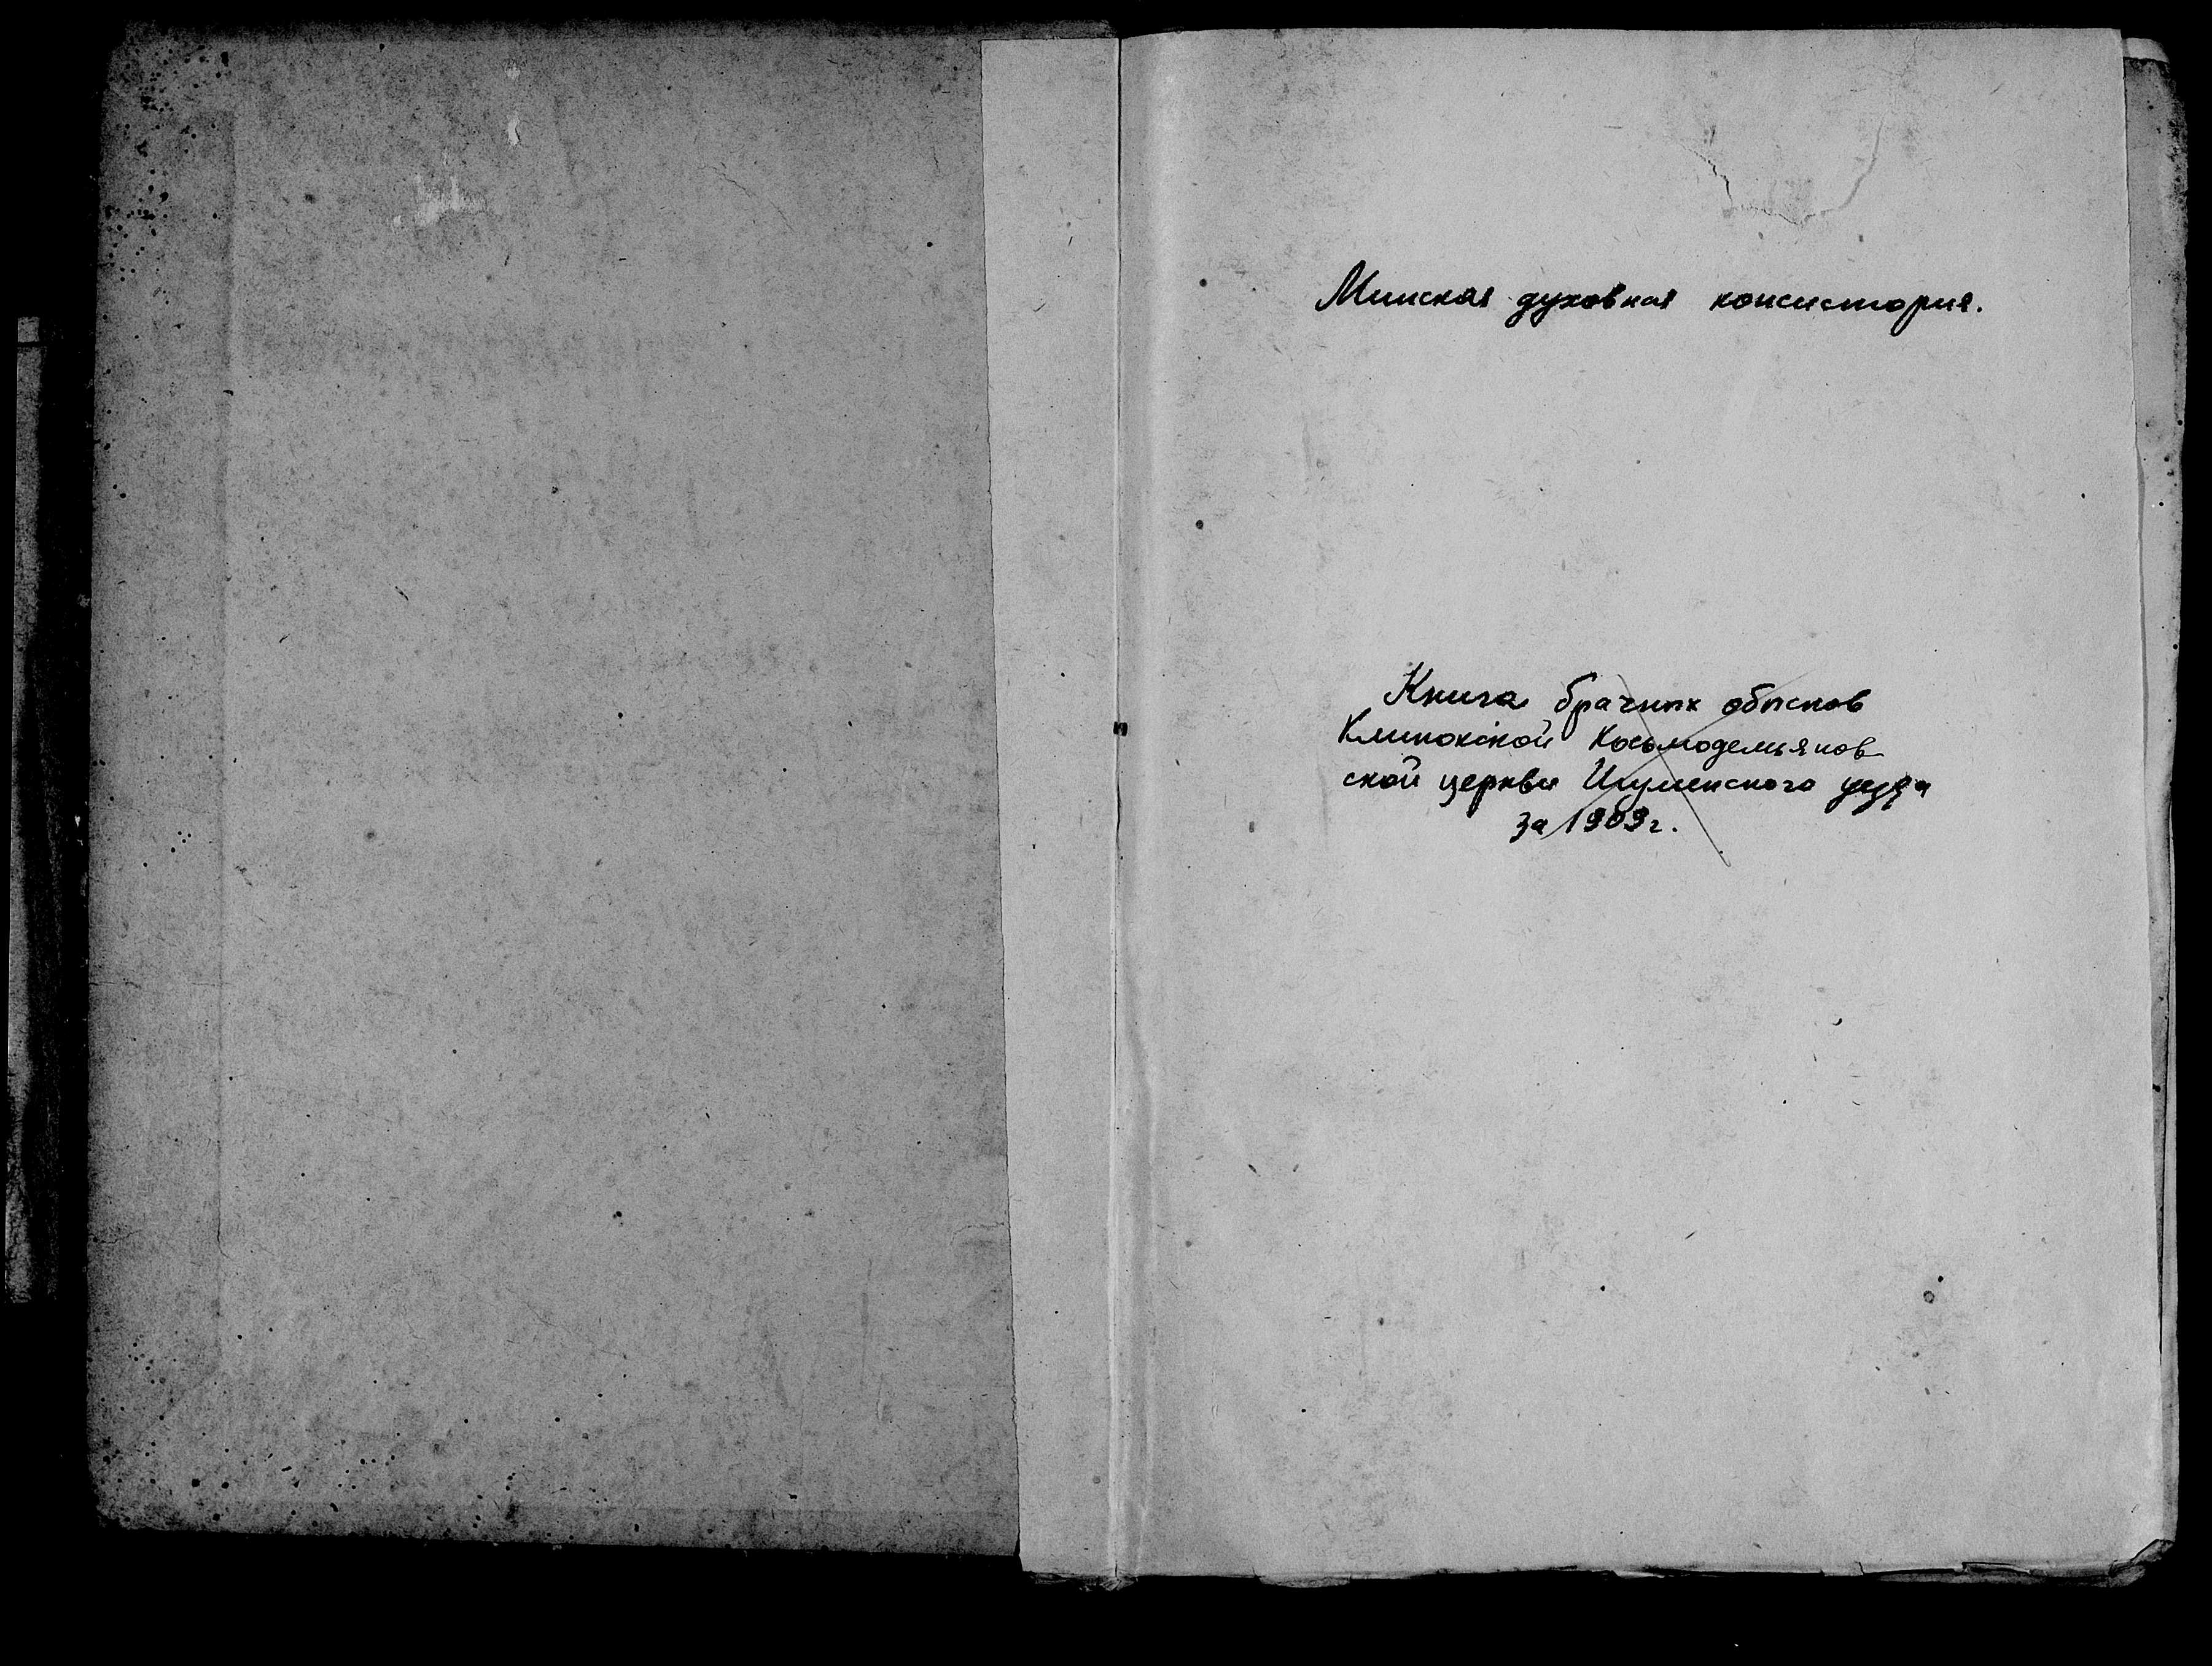 Минская духовная консистория.
Книга брачных обысков
Клинокской Косьмодемьянов
ской церкви Игуменского уезда
за 1909 г.